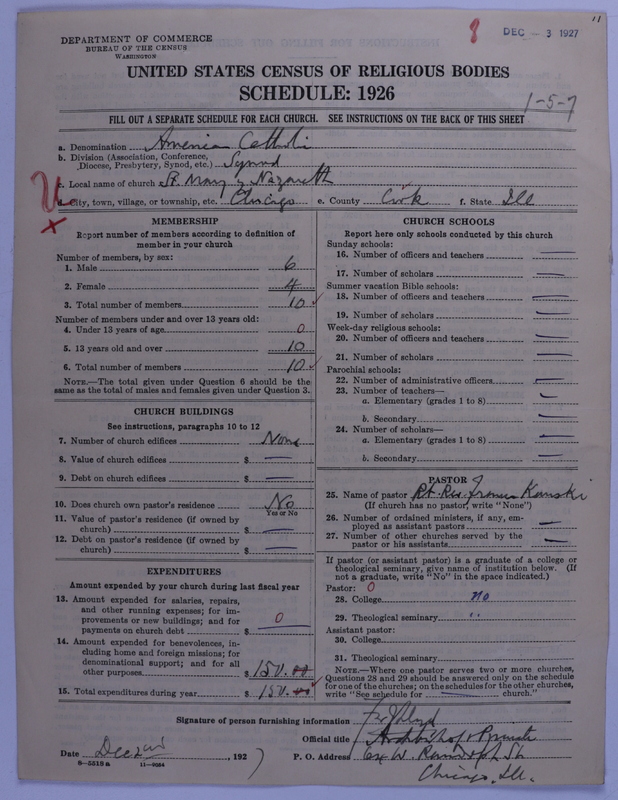 11
DEPARTMENT OF COMMERCE
BUREAU OF THE CENSUS
WASHINGTON
DEC - 3 1927
UNITED STATES CENSUS OF RELIGIOUS BODIES
SCHEDULE: 1926
1-5-7
FILL OUT A SEPARATE SCHEDULE FOR EACH CHURCH. SEE INSTRUCTIONS ON THE BACK OF THIS SHEET
a. Denomination American Catholic
b. Division (Association, Conference,
Diocese, Presbytery, Synod, etc.) Synod
c. Local name of church St. Mary of Nazareth
d. City, town, village, or township, etc. Chicago e. County Cook f. State Ill
MEMBERSHIP
Report number of members according to definition of
member in your church
Number of members, by sex:
1. Male 6
2. Female 4
3. Total number of members 10
Number of members under and over 13 years old:
4. Under 13 years of age 0
5. 13 years old and over 10
6. Total number of members 10
NOTE.—The total given under Question 6 should be the
same as the total of males and females given under Question 3.
CHURCH BUILDINGS
See instructions, paragraphs 10 to 12
7. Number of church edifices None
8. Value of church edifices $ —
9. Debt on church edifices $ —
10. Does church own pastor's residence No
Yes or No
11. Value of pastor's residence (if owned by
church) $ —
12. Debt on pastor's residence (if owned by
church) $ —
EXPENDITURES
Amount expended by your church during last fiscal year
13. Amount expended for salaries, repairs,
and other running expenses; for im-
provements or new buildings; and for
payments on church debt $ 0
14. Amount expended for benevolences, in-
cluding home and foreign missions; for
denominational support; and for all
other purposes $ 150.00
15. Total expenditures during year $ 150.00
CHURCH SCHOOLS
Report here only schools conducted by this church
Sunday schools:
16. Number of officers and teachers —
17. Number of scholars —
Summer vacation Bible schools:
18. Number of officers and teachers —
19. Number of scholars —
Week-day religious schools:
20. Number of officers and teachers —
21. Number of scholars —
Parochial schools:
22. Number of administrative officers —
23. Number of teachers—
a. Elementary (grades 1 to 8) —
b. Secondary —
24. Number of scholars—
a. Elementary (grades 1 to 8) —
b. Secondary —
PASTOR
25. Name of pastor Rt. Rev. Francis Kanski
(If church has no pastor, write "None")
26. Number of ordained ministers, if any, em-
ployed as assistant pastors —
27. Number of other churches served by the
pastor or his assistants —
If pastor (or assistant pastor) is a graduate of a college or
theological seminary, give name of institution below. (If
not a graduate, write "No" in the space indicated.)
Pastor: 0
28. College no
29. Theological seminary "
Assistant pastor:
30. College
31. Theological seminary
NOTE.—Where one pastor serves two or more churches,
Questions 28 and 29 should be answered only on the schedule
for one of the churches; on the schedules for the other churches,
write "See schedule for — church."
Signature of person furnishing information Lloyd
Official title Archbishop & Primate
Date Dec 2nd, 1927 P. O. Address W. Randolph St
8—5518 a 11—9054
Chicago. Ill.